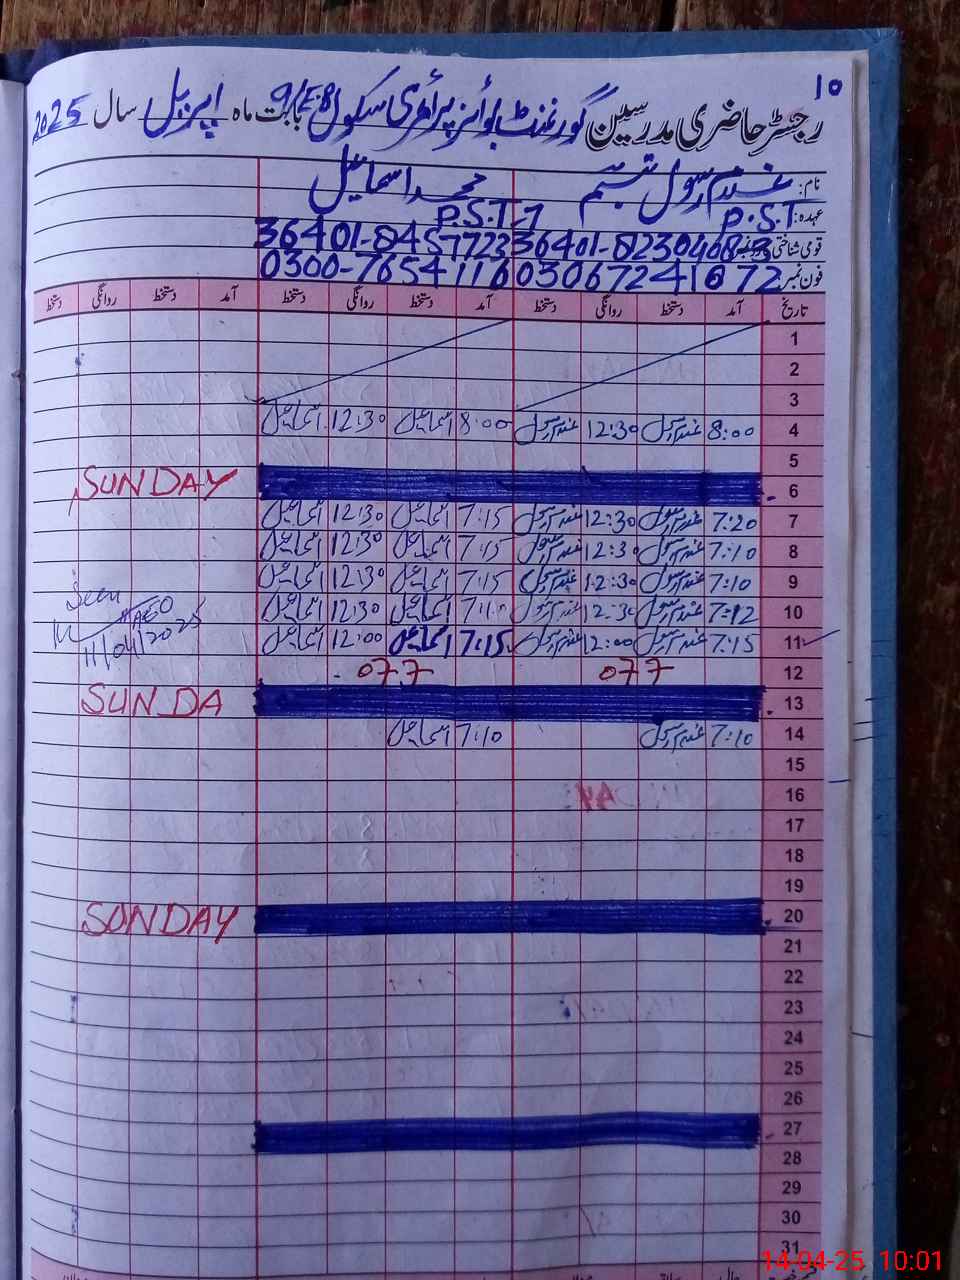 10
رجسٹر حاضری مدرسین گورنمنٹ بوائز پرائمری سکول 9/E.B بابت ماہ اپریل سال 2025
نام: غلام رسول تبسم محمد اسماعیل
عہدہ: P.S.T P.S.T
قومی شناختی 36401-8457723
فون نمبر: 03067241672 0300-7654116
تاریخ آمد دستخط روانگی دستخط آمد دستخط روانگی دستخط آمد دستخط روانگی دستخط
1
2
3
4 8:00 غلام رسول 12:30 غلام رسول 8:00 اسماعیل 12:30 اسماعیل
5
6 SUNDAY
7 7:20 غلام رسول 12:30 غلام رسول 7:15 اسماعیل 12:30 اسماعیل
8 7:10 غلام رسول 12:30 غلام رسول 7:15 اسماعیل 12:30 اسماعیل
9 7:10 غلام رسول 12:30 غلام رسول 7:15 اسماعیل 12:30 اسماعیل
10 7:12 غلام رسول 12:30 غلام رسول 7:10 اسماعیل 12:30 اسماعیل Seen
11 7:15 غلام رسول 12:00 غلام رسول 7:15 اسماعیل 12:00 اسماعیل 11/04/2025
12 077 077
13 SUNDA
14 7:10 غلام رسول 7:10 اسماعیل
15
16
17
18
19
20 SUNDAY
21
22
23
24
25
26
27
28
29
30
31
14-04-25 10:01